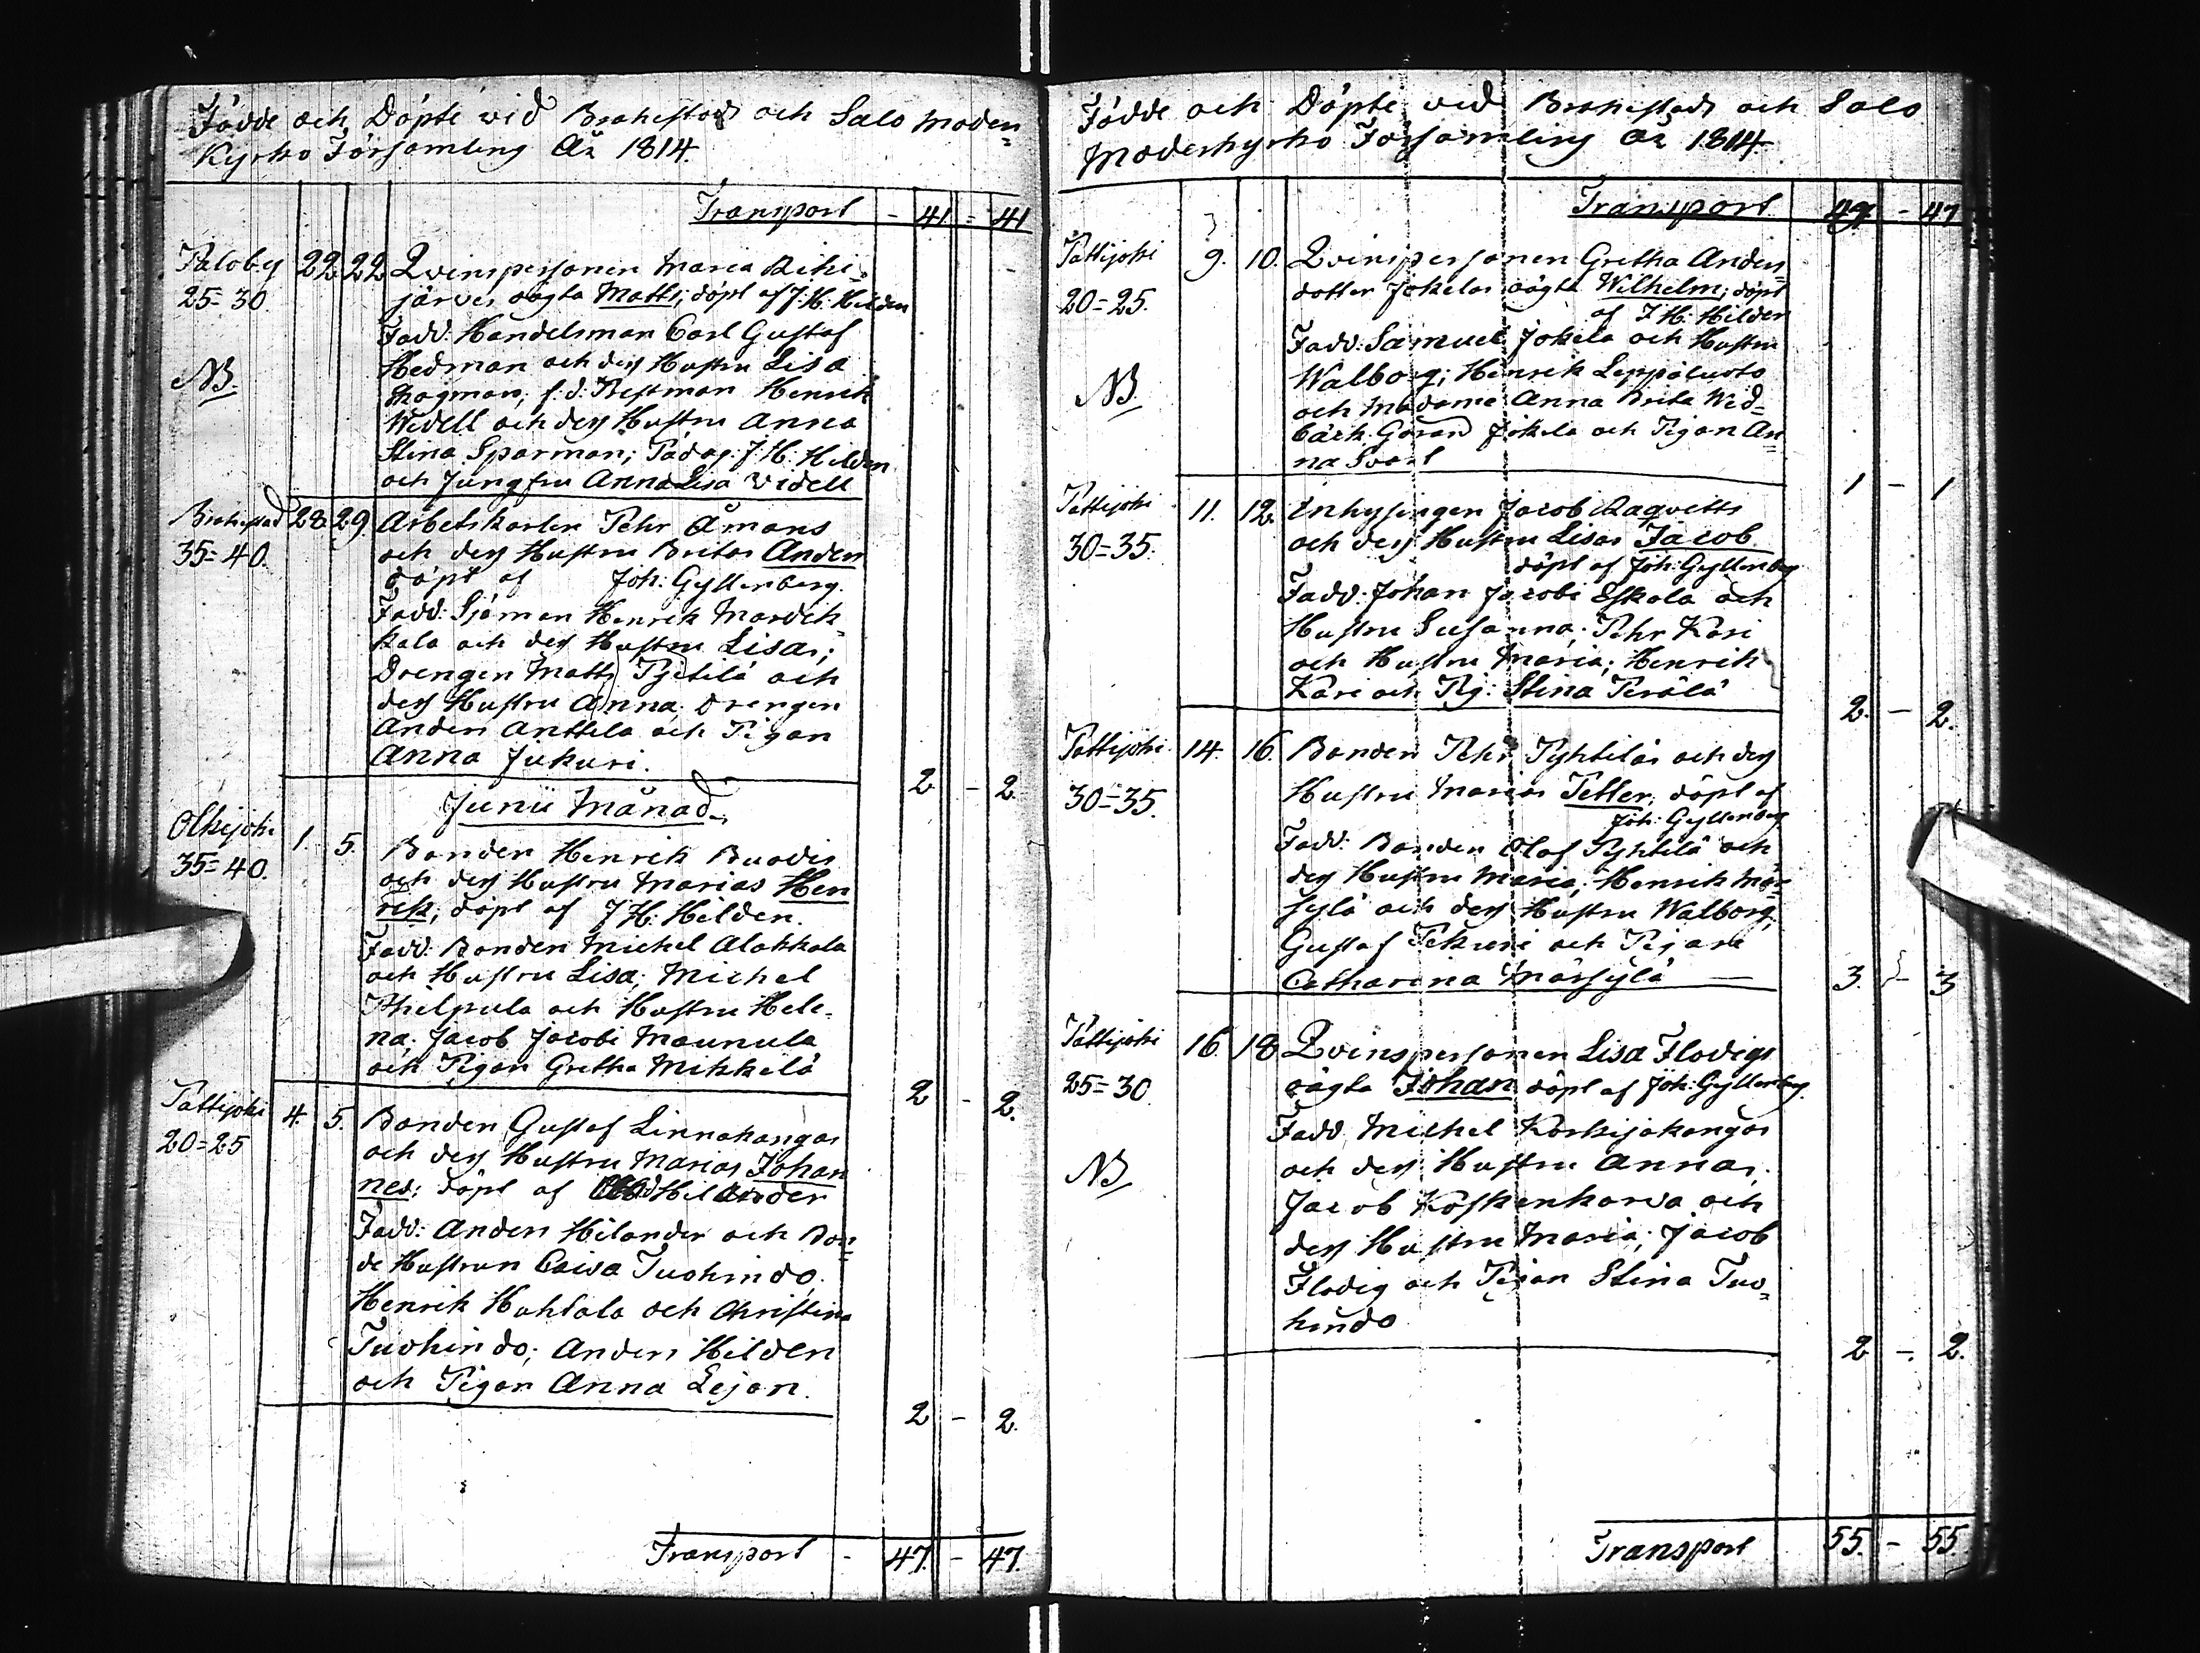 Födde och Döpte wid Brahestads och Salo moder=
Kyrko Församling År 1814.
Transport - 41 - 41
Paloby 22 22 Qvinspersonen Maria Rihi=
25=30. järvis oägta Matts; döpt af J: H: Hilden
Fadd: Handelsman Carl Gustaf
Hedman och dess Hustru Lisa
NB. Hagman; f. d. Bestman Henrik
Widell och dess Hustru Anna
Stina Sparman; Pädag: J: H: Hilden
och Jungfru Anna Lisa Videll
Brahestad 28. 29. Arbetskarlen Pehr Åmans
35=40. och dess Hustru Britas Anders
döpt af Joh: Gyllenberg.
Fadd: Sjöman Henrik Mardik=
kala och dess Hustru Lisa;
Drengen Matts Pjetilä och
dess Hustru Anna; Drengen
Anders Anttila och Pigan
Anna Jukuri.
2 - 2
Junii Månad.
Olkijoki 1. 5. Bonden Henrik Ruodis
35=40. och dess Hustru Marias Hen
rik; döpt af J H: Hilden.
Fadd: Bonden Michel Alakkala
och Hustru Lisa; Michel
Philpula och Hustru Hele=
na; Jacob Jacobi Maunula
och Pigan Gretha Mikkilä
2 - 2.
Pattijoki 4. 5. Bonden Gustaf Linnakangas
20=25 och dess Hustru Marias Johan
nes; döpt af Hilander
Fadd: Anders Hilander och Bon=
de Hustrun Caisa Tuohindo;
Henrik Huhtala och Christina
Tuohindo; Anders Hilden
och Pigan Anna Lejon.
2 - 2.
Transport - 47. - 47.
Födde och Döpte vid Brahestads och Salo
Moderkyrko Församling År 1814
Transport 47 - 47
Pattijoki 9. 10. Qvinspersonen Gretha Anders=
20=25. dotter Jokelas oägta Wilhelm; döpt
af J H: Hilden
Fadd: Samuel Jokela och Hustru
NB. Walborg; Henrik Leppäluoto
och Madame Anna Brita Wid=
bäck; Göran Jokela och Pigan An=
na Svart
1 - 1
Pattijoki 11. 12. Inhysingen Jacob Raqvitts
30=35. och dess Hustru Lisas Jacob
döpt af Joh: Gyllenberg
Fadd: Johan Jacobi Eskola och
Hustru Susanna; Pehr Kari
och Hustru Maria; Henrik
Kari och Pig: Stina Perälä
2. - 2.
Pattijoki 14. 16. Bonden Pehr Pyhtiläs och dess
30=35. Hustru Marias Petter; döpt af
Joh: Gyllenberg
Fadd: Bonden Olof Pyhtilä och
dess Hustru Maria; Henrik Mär=
sylä och dess Hustru Walborg;
Gustaf Pekuri och Pigan
Catharina Märsylä
3. - 3
Pattijoki 16. 18 Qvinspersonen Lisa Flodigs
25=30. oägta Johan döpt af Joh: Gyllenberg.
Fadd: Michel Korkiakangas
NB. och dess Hustru Anna;
Jacob Koskenkorva och
dess Hustru Maria; Jacob
Flodig och Pigan Stina Tuo=
hindo
2 - 2.
Transport 55. - 55.